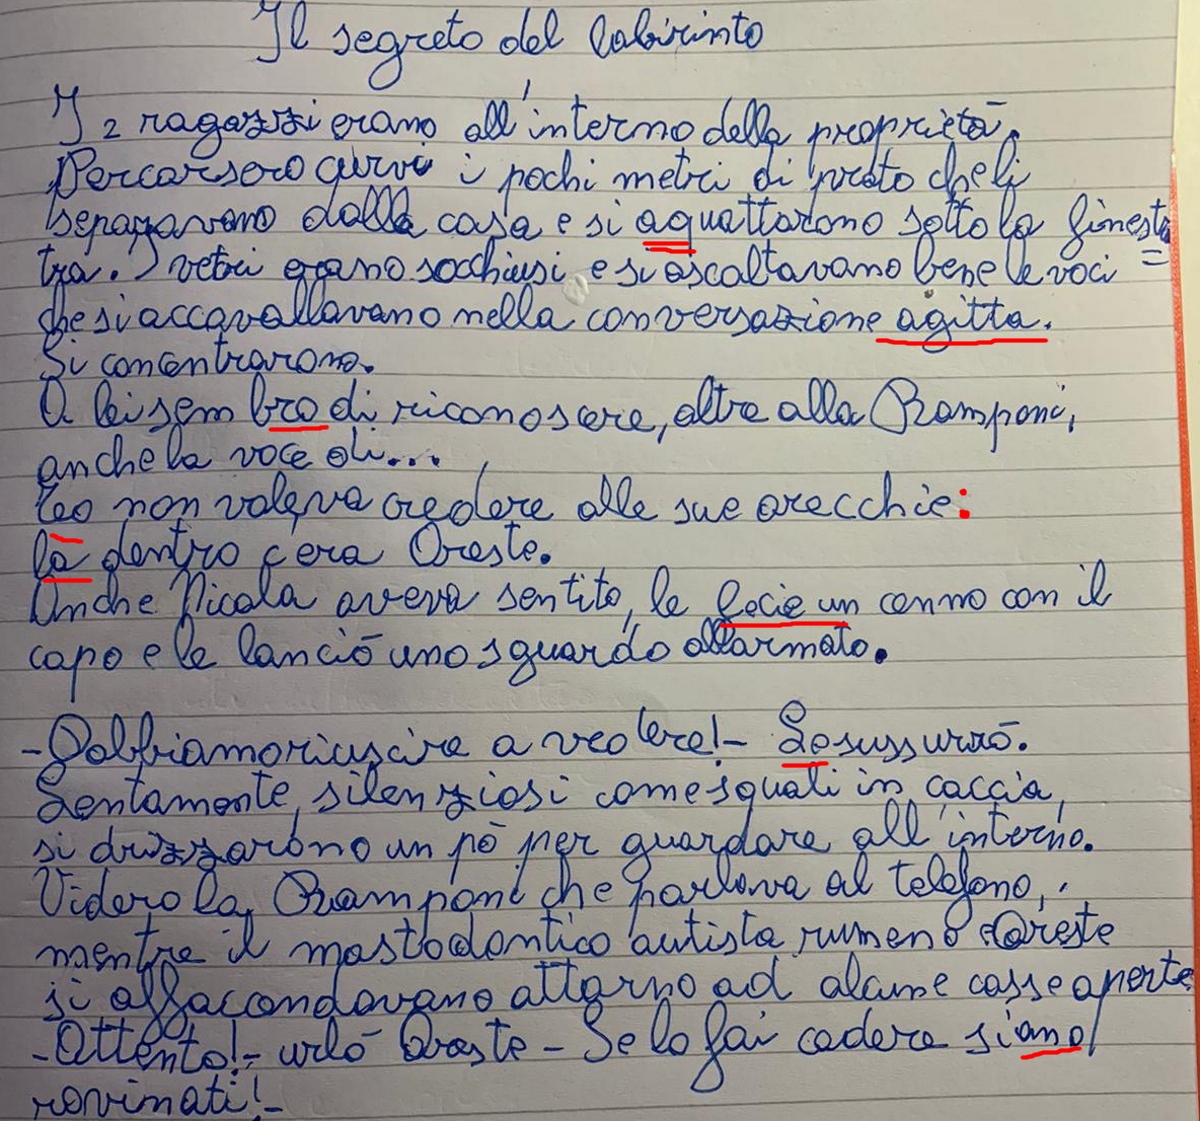 Il segreto del labirinto
I 2 ragazzi erano all'interno della proprietà.
Percorsero curvi i pochi metri di prato che li
separavano dalla casa e si aquattarono sotto la finest
tra. I vetri erano socchiusi e si ascoltavano bene le voci =
che si accavallavano nella conversazione agitta.
Si concentrarono.
A lei sem bro di riconoscere, oltre alla Ramponi,
anche la voce di...
Leo non voleva credere alle sue orecchie:
là dentro c'era Oreste.
Anche Nicola aveva sentito, le fecie un cenno con il
capo e le lanciò uno sguardo allarmato.
-Dobbiamo riuscire a vedere!- Le sussurrò.
Lentamente, silenziosi come squali in caccia,
si drizzarono un pò per guardare all'interno.
Videro la Ramponi che parlava al telefono,
mentre il mastodontico autista rumeno Oreste
si affacondavano attorno ad alcune casse aperte
-Attento!- urlò Oreste - Se lo fai cadere siamo
rovinati!-